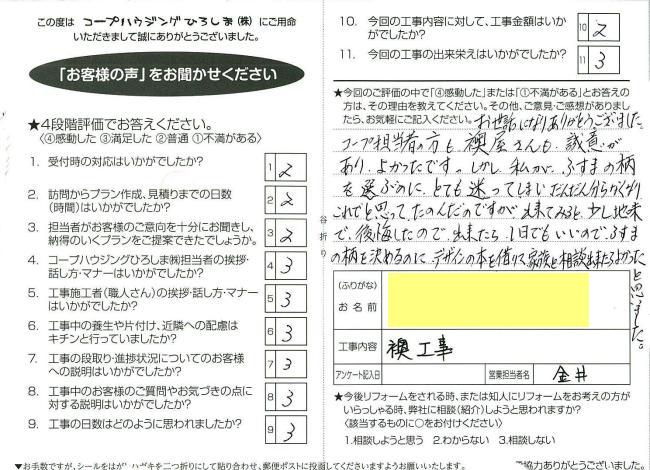 この度は コープハウジングひろしま(株) にご用命
いただきまして誠にありがとうございました。
「お客様の声」をお聞かせください
★4段階評価でお答えください。
〈④感動した ③満足した ②普通 ①不満がある〉
1. 受付時の対応はいかがでしたか？ 1 2
2. 訪問からプラン作成、見積りまでの日数
(時間)はいかがでしたか？ 2 2
3. 担当者がお客様のご意向を十分にお聞きし、
納得のいくプランをご提案できたでしょうか。 3 2
4. コープハウジングひろしま㈱担当者の挨拶・
話し方・マナーはいかがでしたか？ 4 3
5. 工事施工者(職人さん)の挨拶・話し方・マナー
はいかがでしたか？ 5 3
6. 工事中の養生や片付け、近隣への配慮は
キチンと行っていましたか？ 6 3
7. 工事の段取り・進捗状況についてのお客様
への説明はいかがでしたか？ 7 3
8. 工事中のお客様のご質問やお気づきの点に
対する説明はいかがでしたか？ 8 3
9. 工事の日数はどのように思われましたか？ 9 3
▼お手数ですが、シールをはがしハガキを二つ折りにして貼り合わせ、郵便ポストに投函してくださいますようお願いいたします。
谷折り
10. 今回の工事内容に対して、工事金額はいか
がでしたか？ 10 2
11. 今回の工事の出来栄えはいかがでしたか？ 11 3
★今回のご評価の中で「④感動した」または「①不満がある」とお答え
の方は、その理由を教えてください。その他、ご意見・ご感想がありまし
たら、お気軽にご記入ください。 お世話になりありがとうございました。
コープ担当者の方も、襖屋さんも、誠意が
あり、よかったです。しかし、私が、ふすまの柄
を選ぶのに、とても迷ってしまい、だんだん分らなくなり
これでと思って、たのんだのですが、出来てみると、少し地味
で、後悔したので、出来たら、1日でもいいので、ふすま
の柄を決めるのに、デザインの本を借りて、家族と相談出来たらよかった
と思いました。
(ふりがな)
お名前
工事内容 襖工事
アンケート記入日 営業担当者名 金井
★今後リフォームをされる時、または知人にリフォームをお考えの方が
いらっしゃる時、弊社に相談(紹介)しようと思われますか？
〈該当するものに○をお付けください〉
1.相談しようと思う 2.わからない 3.相談しない
ご協力ありがとうございました。